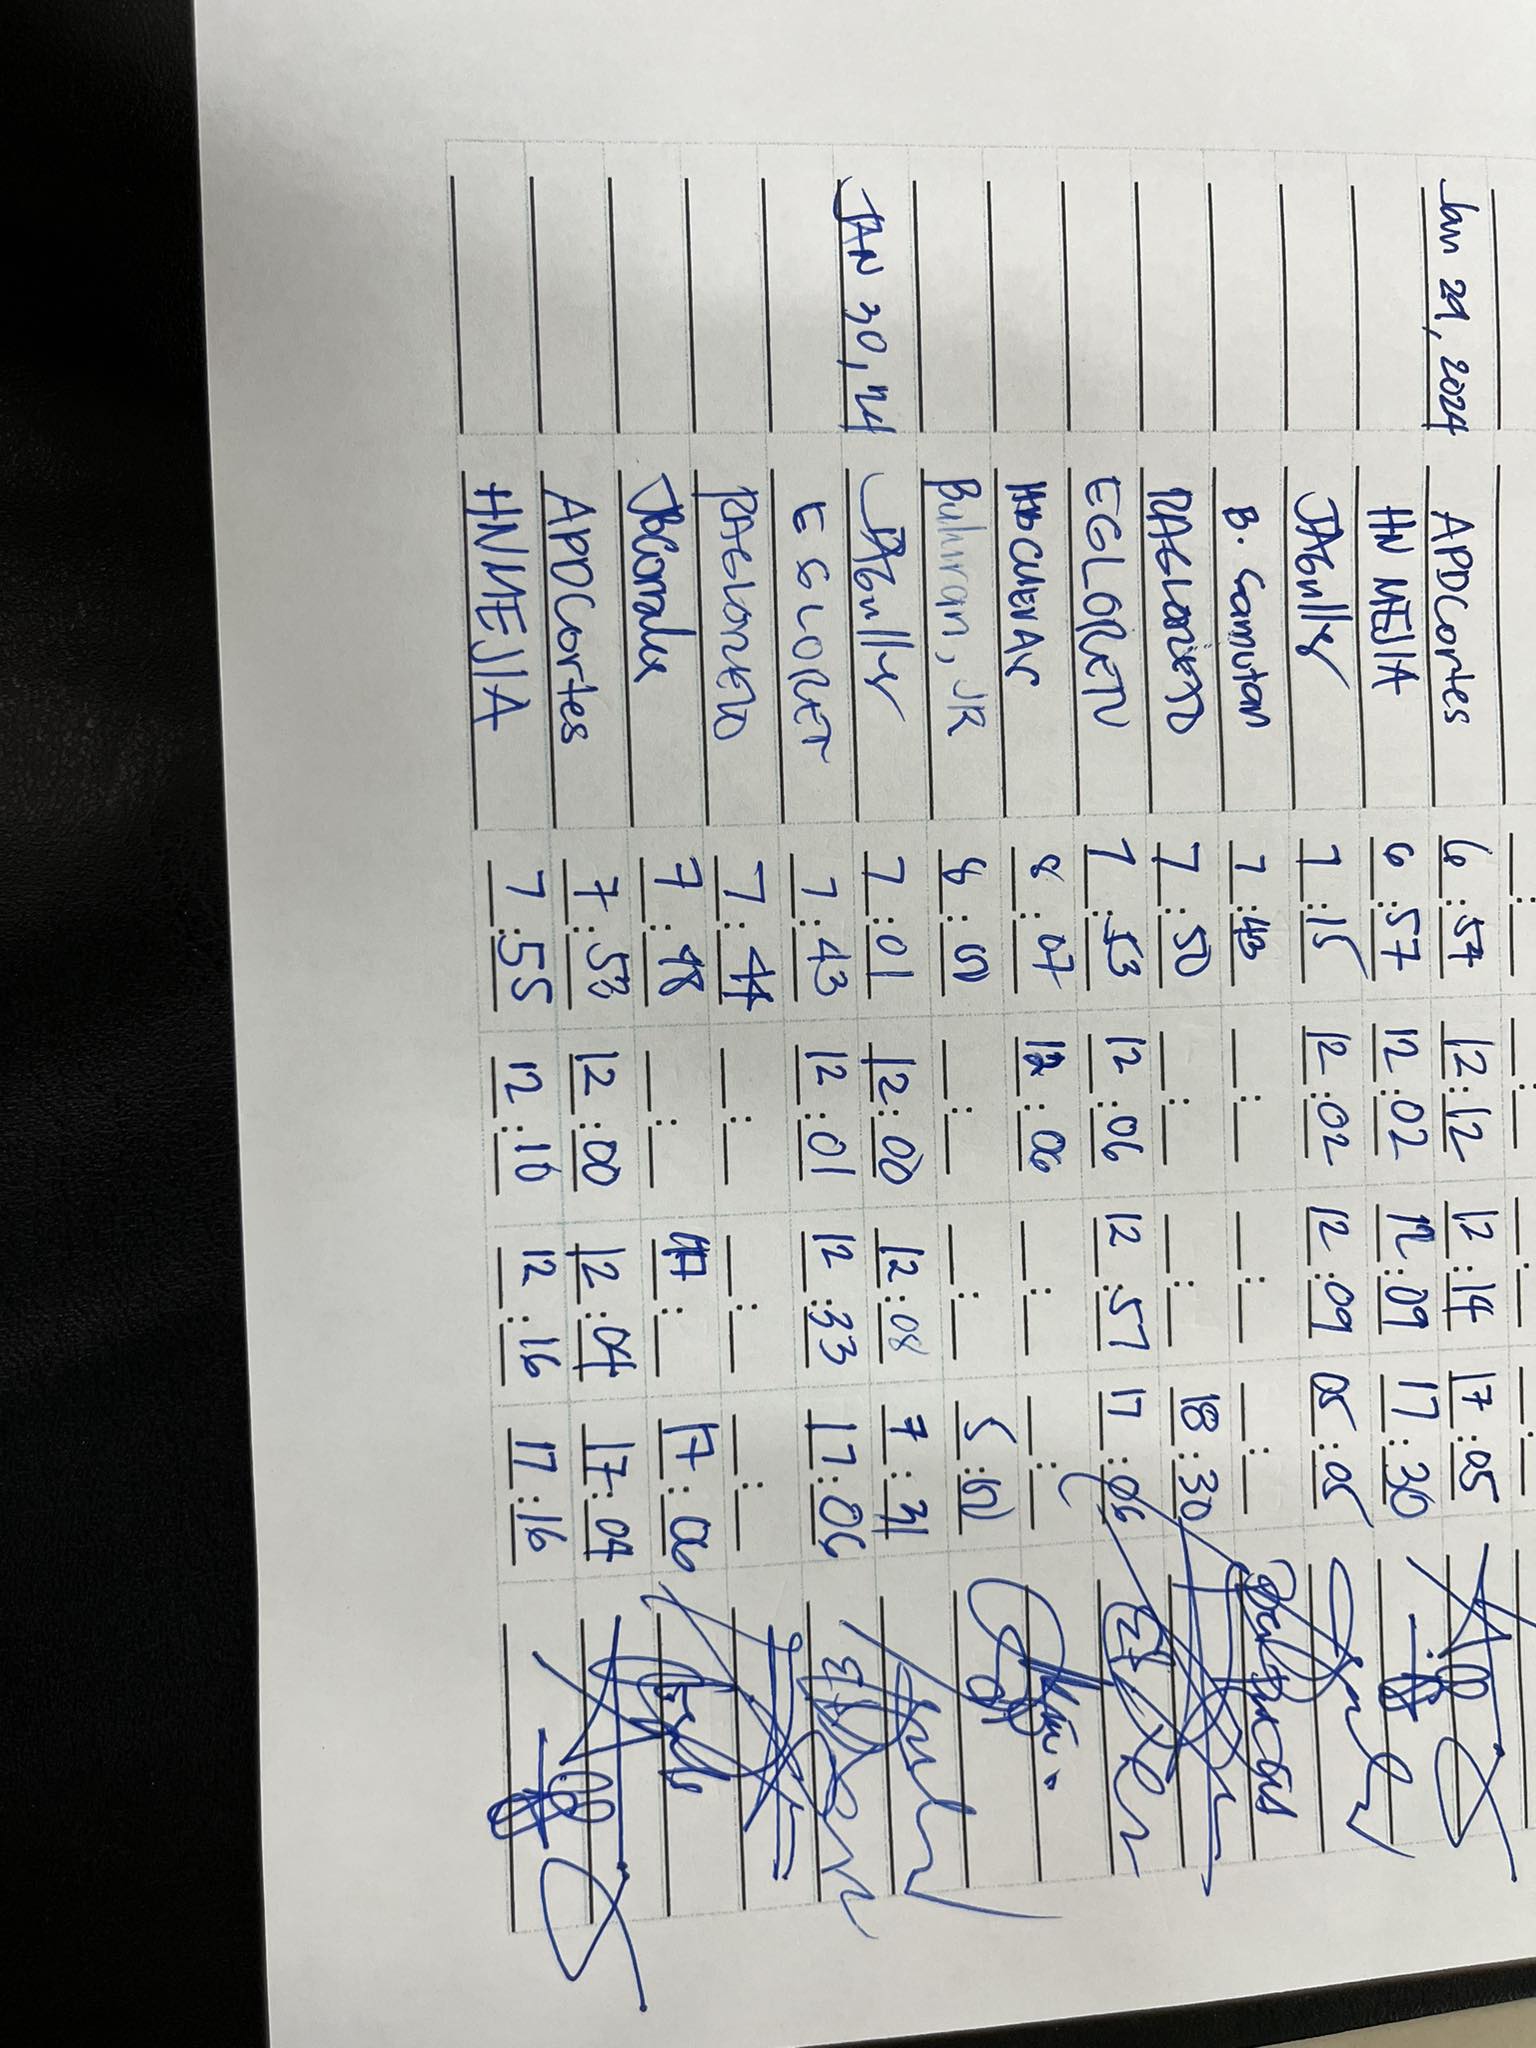 Jan 29, 2024 APDCortes 6:57 12:12 12:14 17:05
HN MEJIA 6:57 12:02 12:09 17:30
JAGuller 7:15 12:02 12:09 05:05
B. Gamutan 7:43
RAGLORETO 7:50 18:30
EGLORETO 7:53 12:06 12:57 17:06
CUENAS 8:07 12:06
Buhiran, JR 8:00 5:00
JAN 30, 24 JAGuller 7:01 12:00 12:08 7:31
EGLORET 7:43 12:01 12:33 17:06
RAGLORETO 7:44
7:48 17:06
APDCortes 7:53 12:00 12:04 17:04
HNMEJIA 7:55 12:10 12:16 17:16